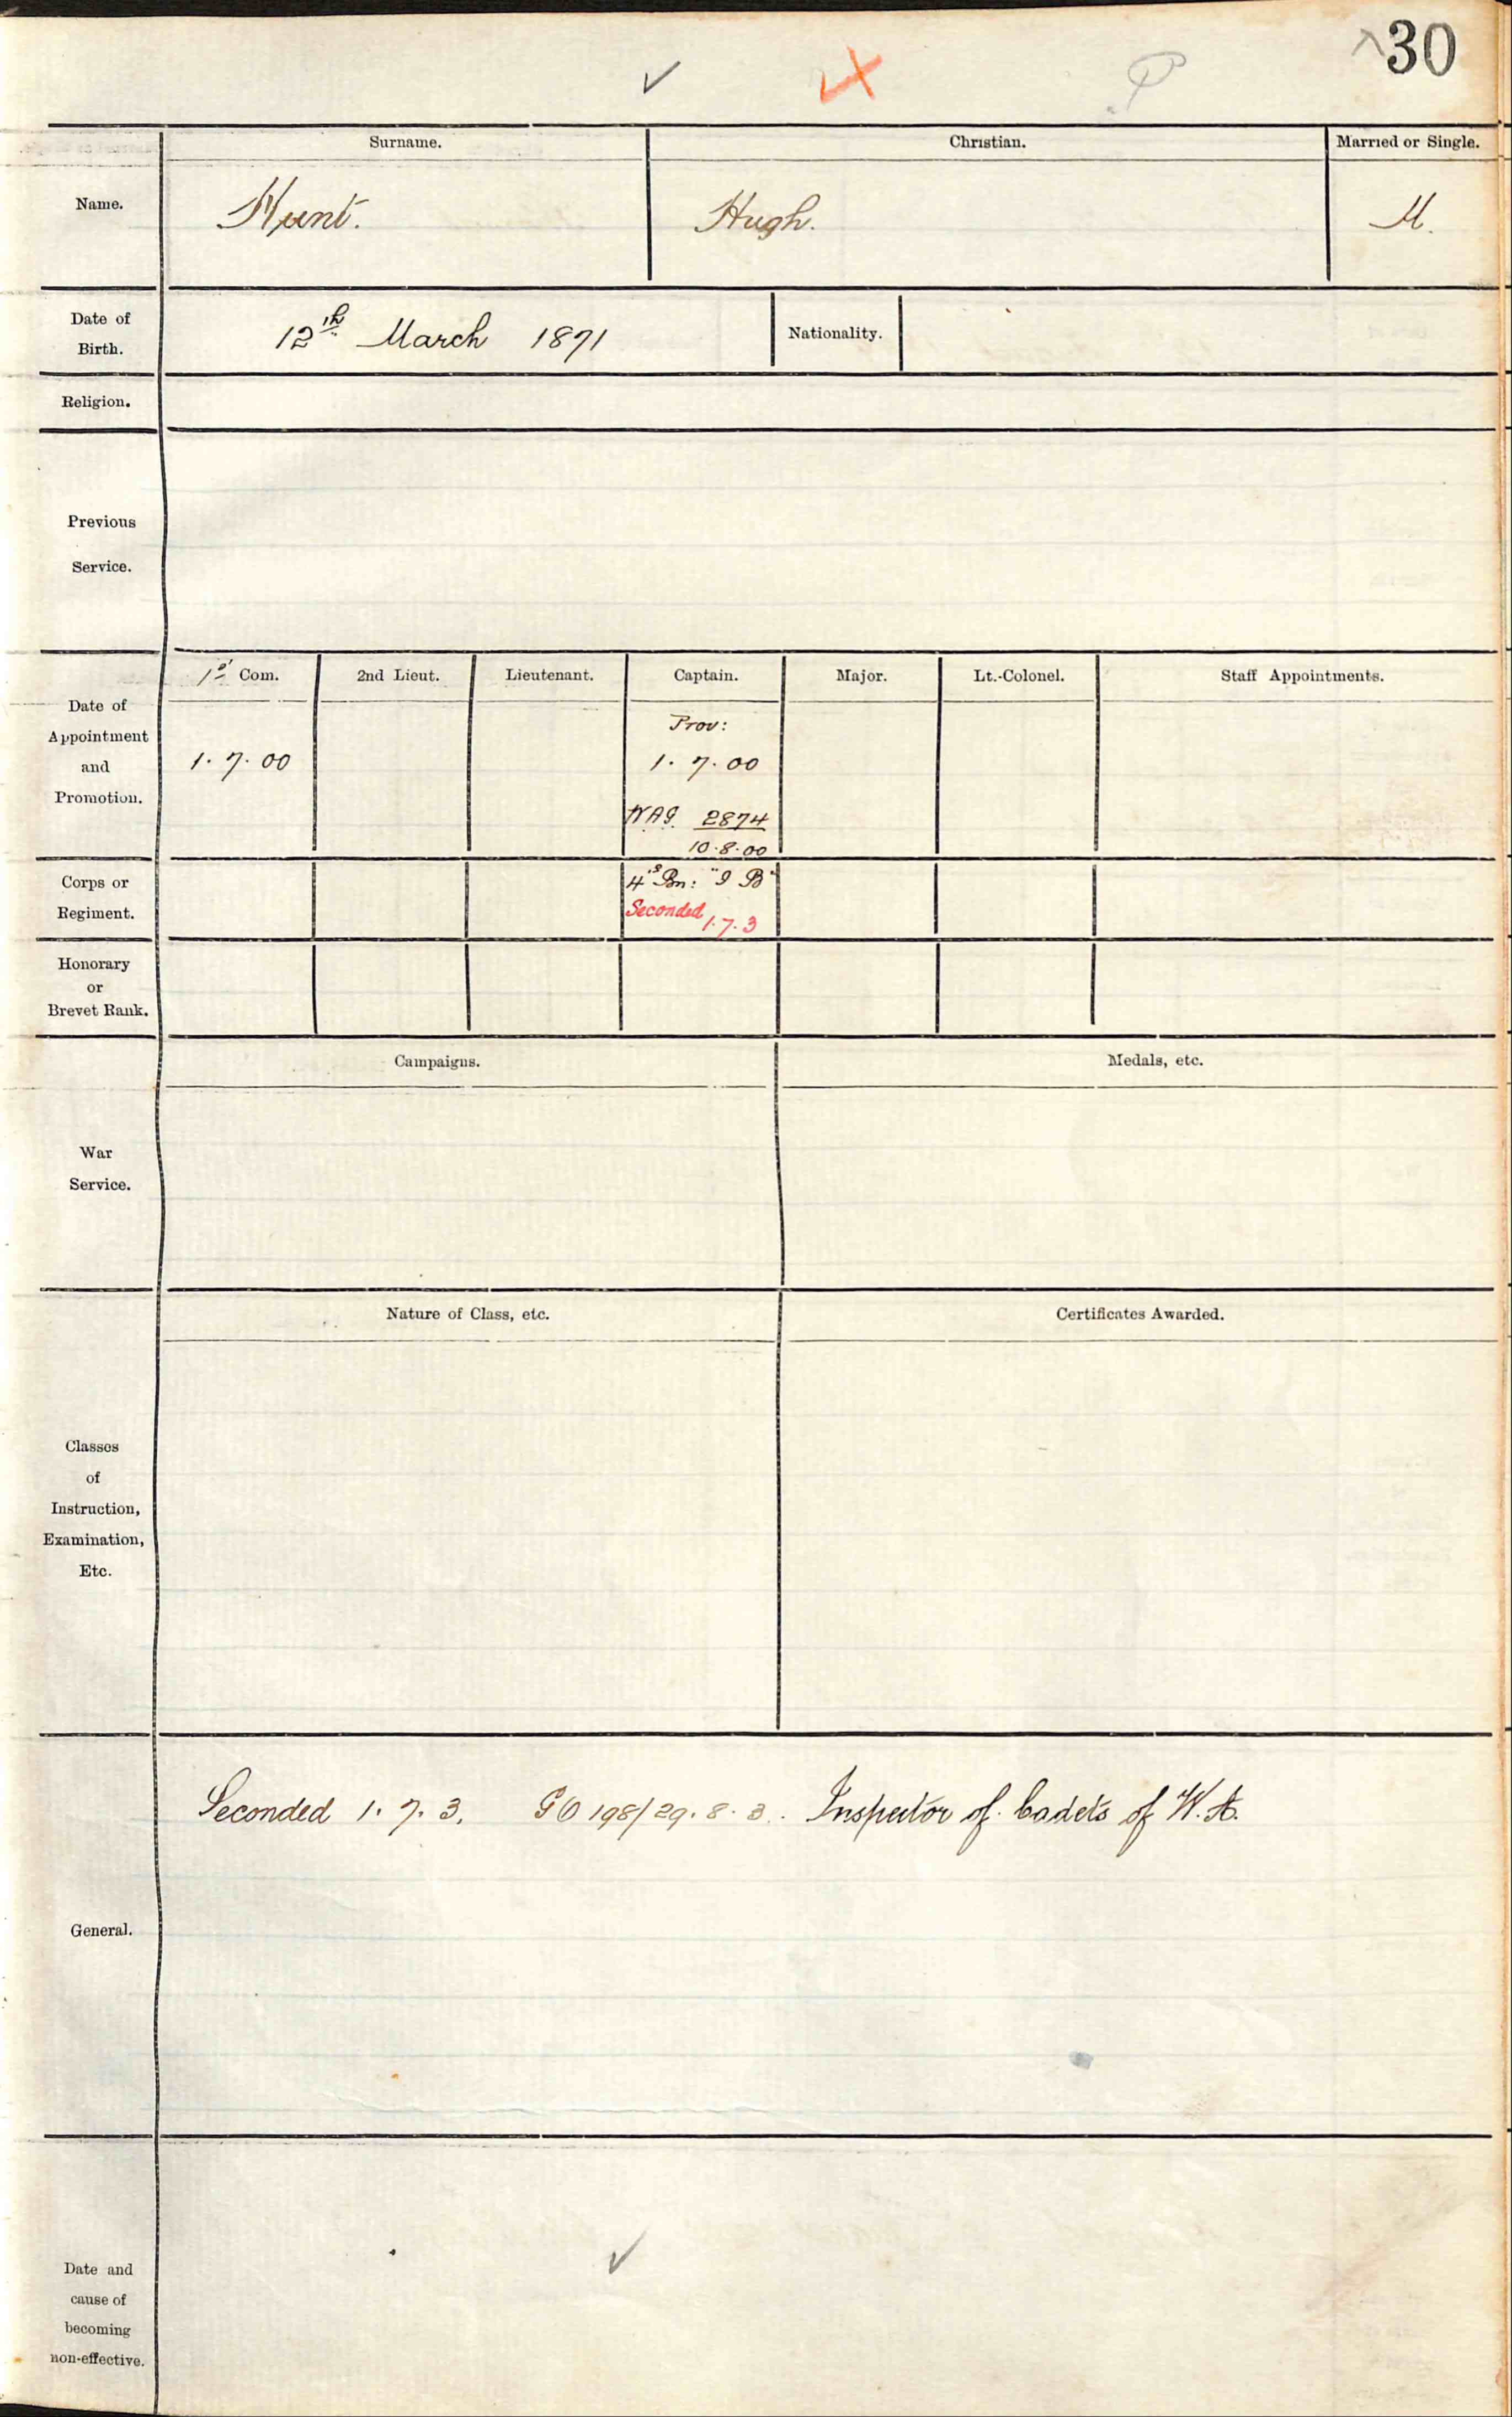 30
P
Surname.
Christian.
Married or Single.
Name.
Hunt.
Hugh.
M.
Date of
Birth.
12th March 1871
Nationality.
Religion.
Previous
Service.
1st Com.
2nd Lieut.
Lieutenant.
Captain.
Major.
Lt.-Colonel.
Staff Appointments.
Date of
Appointment
and
Promotion.
1. 7. 00
Prov:
1. 7. 00
WAG 2874
10.8.00
Corps or
Regiment.
4th Bn: "I B"
Seconded 1.7.3
Honorary
or
Brevet Rank.
Campaigns.
Medals, etc.
War
Service.
Nature of Class, etc.
Certificates Awarded.
Classes
of
Instruction,
Examination,
Etc.
Seconded 1. 7. 3. GO 198/29. 8. 3. Inspector of Cadets of W. A.
General.
Date and
cause of
becoming
non-effective.